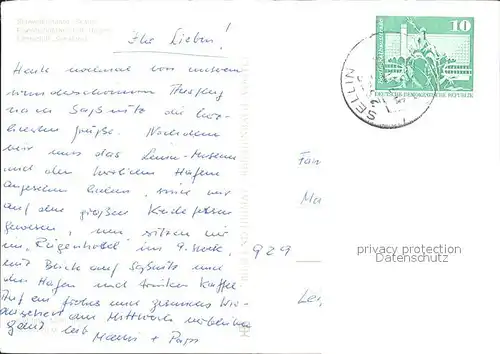 Ihr Lieben!
Heute nochmal von unserem
wunderschönen Ausflug
nach Saßnitz die herz-
lichsten Grüße. Nachdem
wir uns das Lenin-Museum
und den herrlichen Hafen
angesehen haben, sind wir
auf den großen Kreidefelsen
gewesen, nun sitzen wir
im "Rügenhotel" im 9. Stock,
mit Blick auf Saßnitz und
den Hafen und trinken Kaffee.
Auf ein frohes und gesundes Wie-
dersehen am Mittwoch verbleiben
ganz lieb
Mama + Papa
10
DEUTSCHE DEMOKRATISCHE REPUBLIK
SELLIN
Fam
Ma
929
Le
privacy protection
Datenschutz